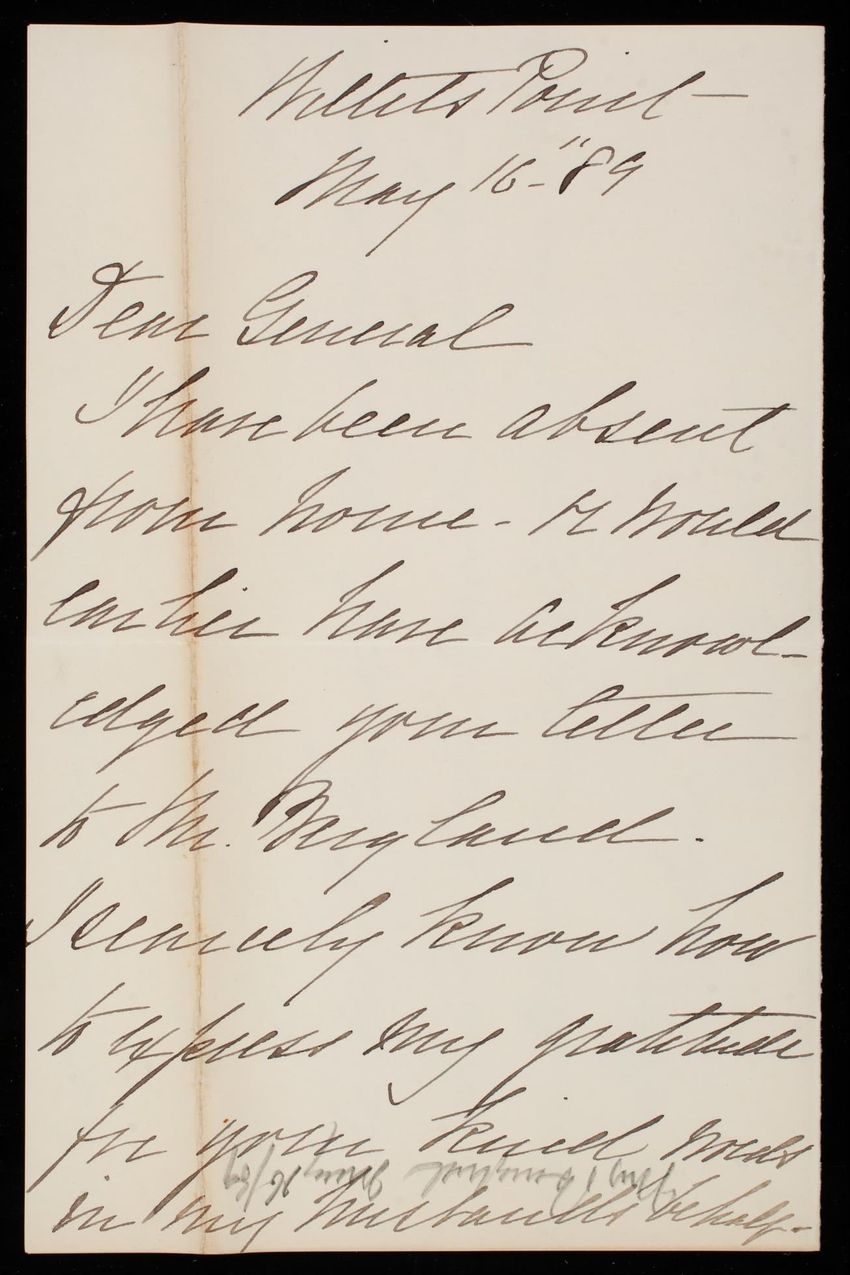 Willets Point —
May 16 - " 89
Dear General
I have been absent
from home - or would
earlier have acknowl-
edged your letter
to Mr.
I scarcely know how
to express my gratitude
for your kind words
in my husband's behalf -
May 16/89